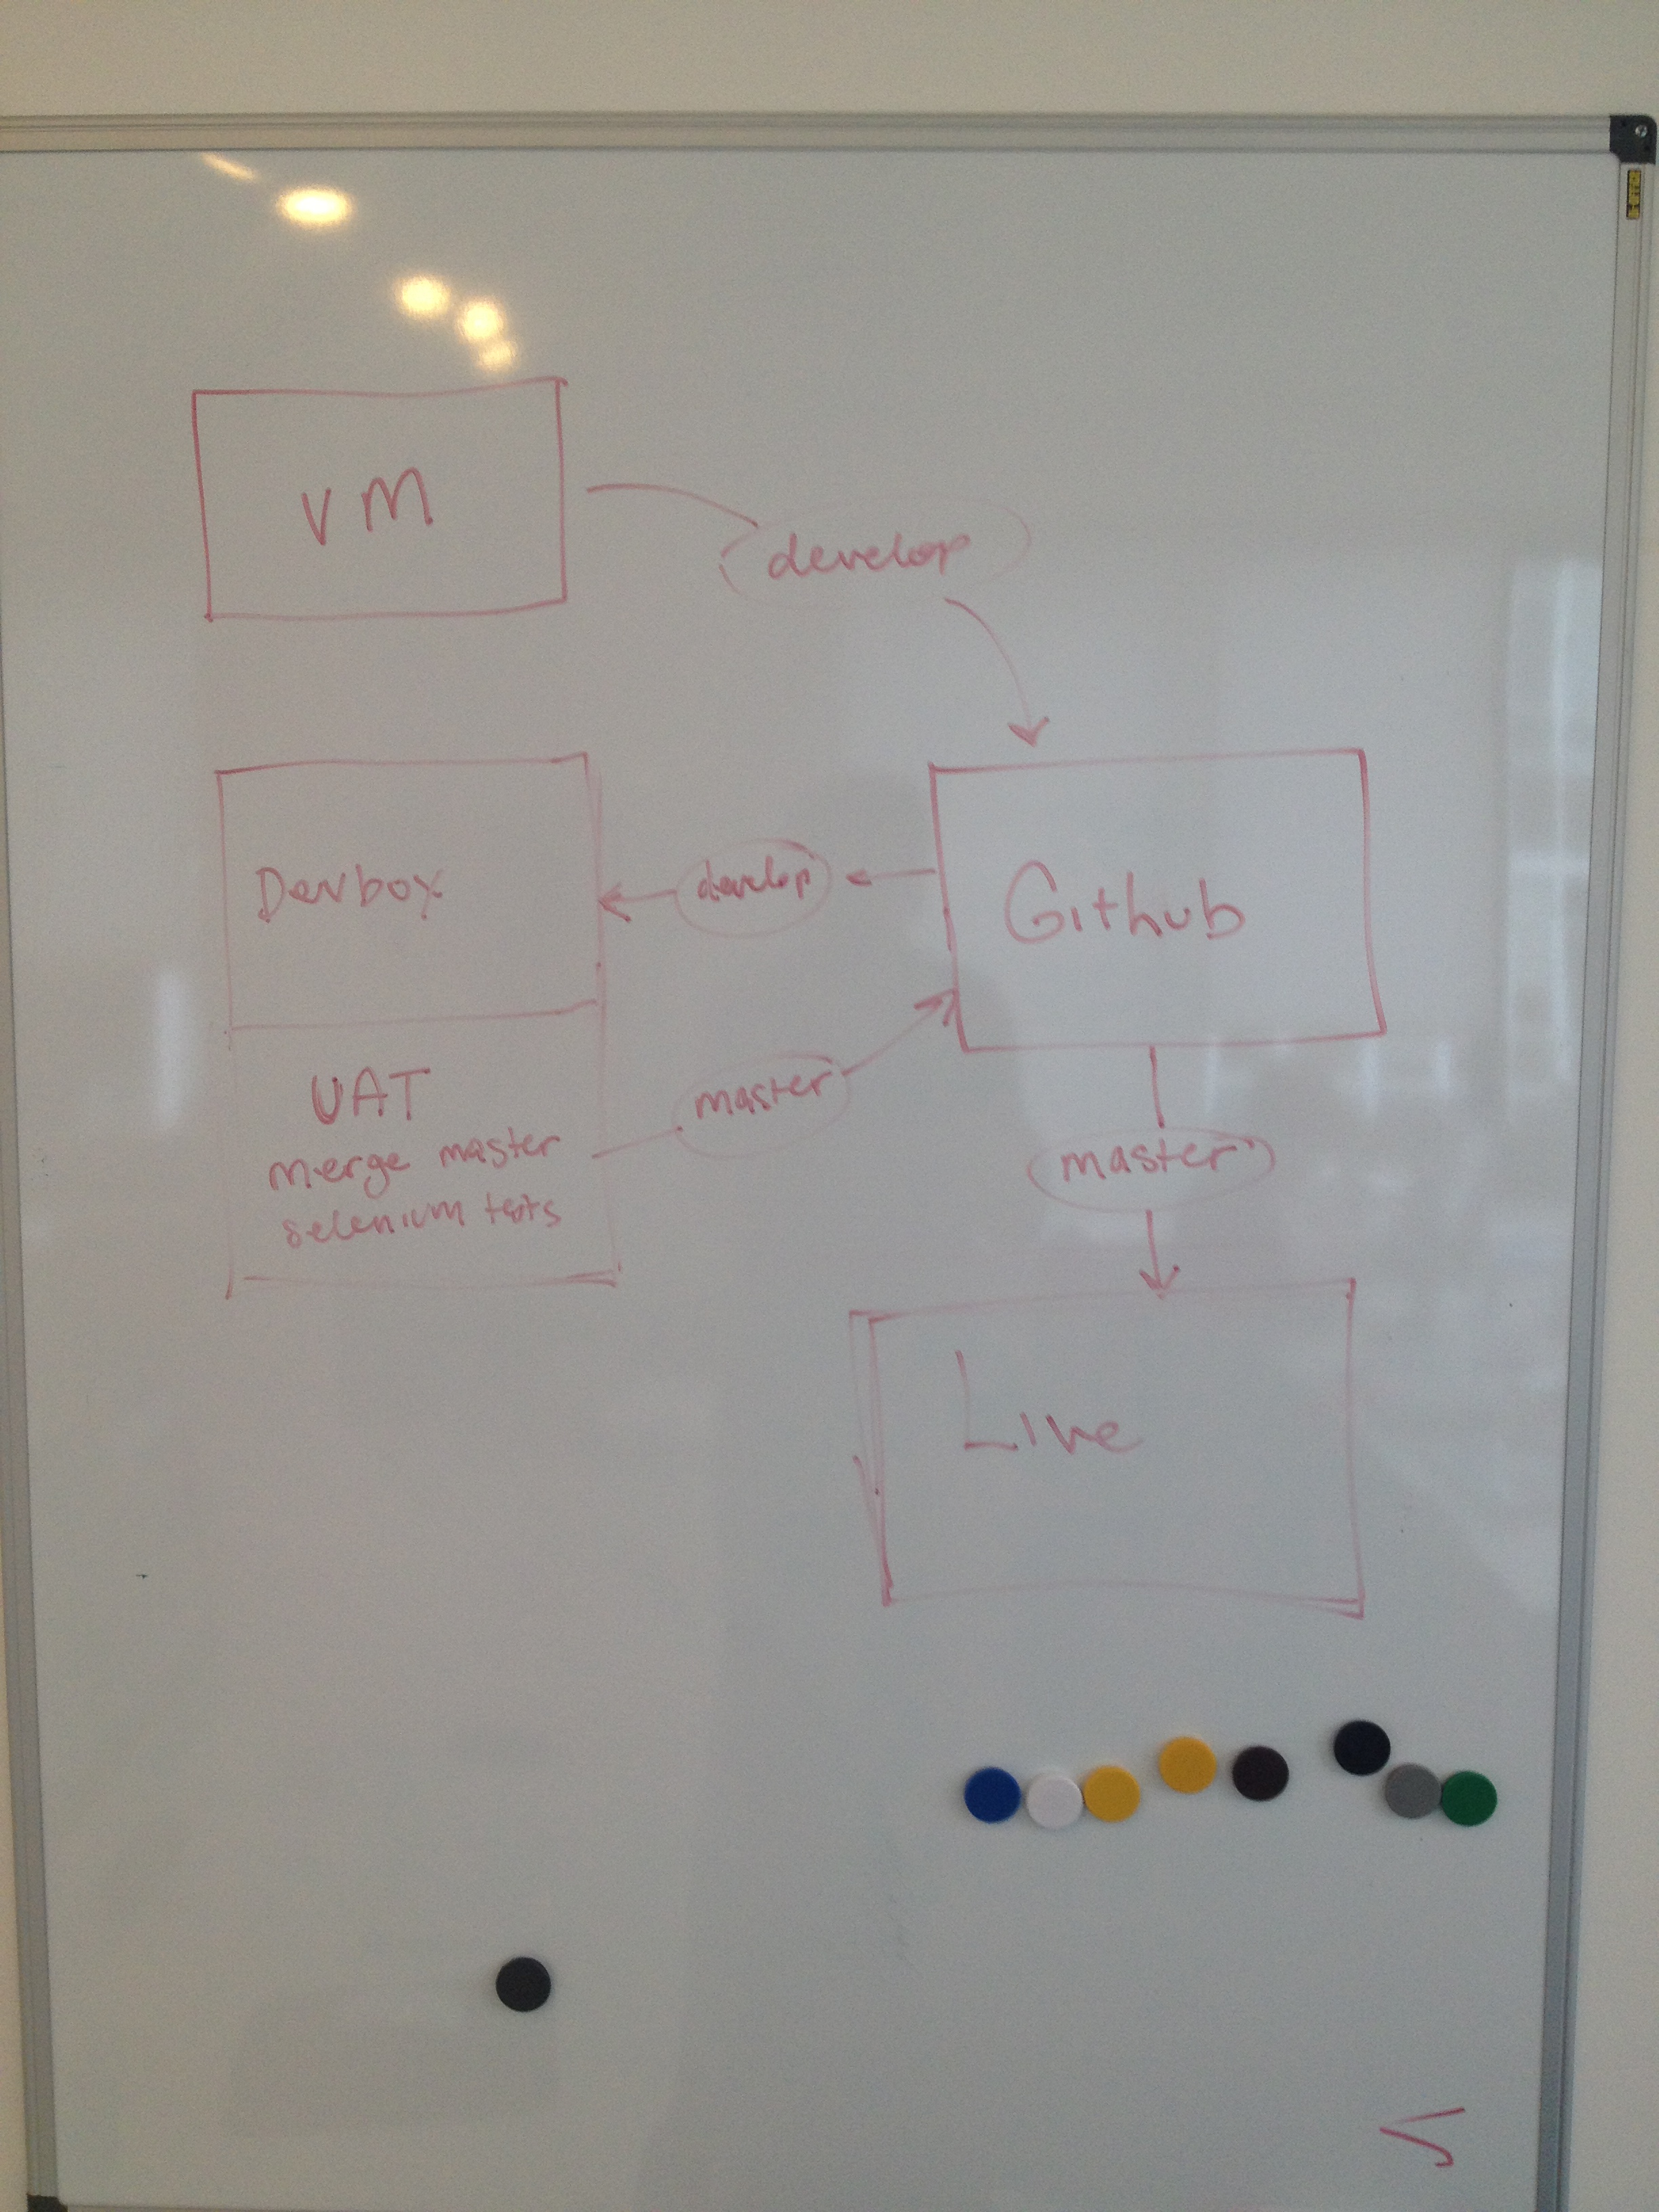 VM
develop
Devbox
develop
Github
UAT
merge master
selenium tests
master
master
Live